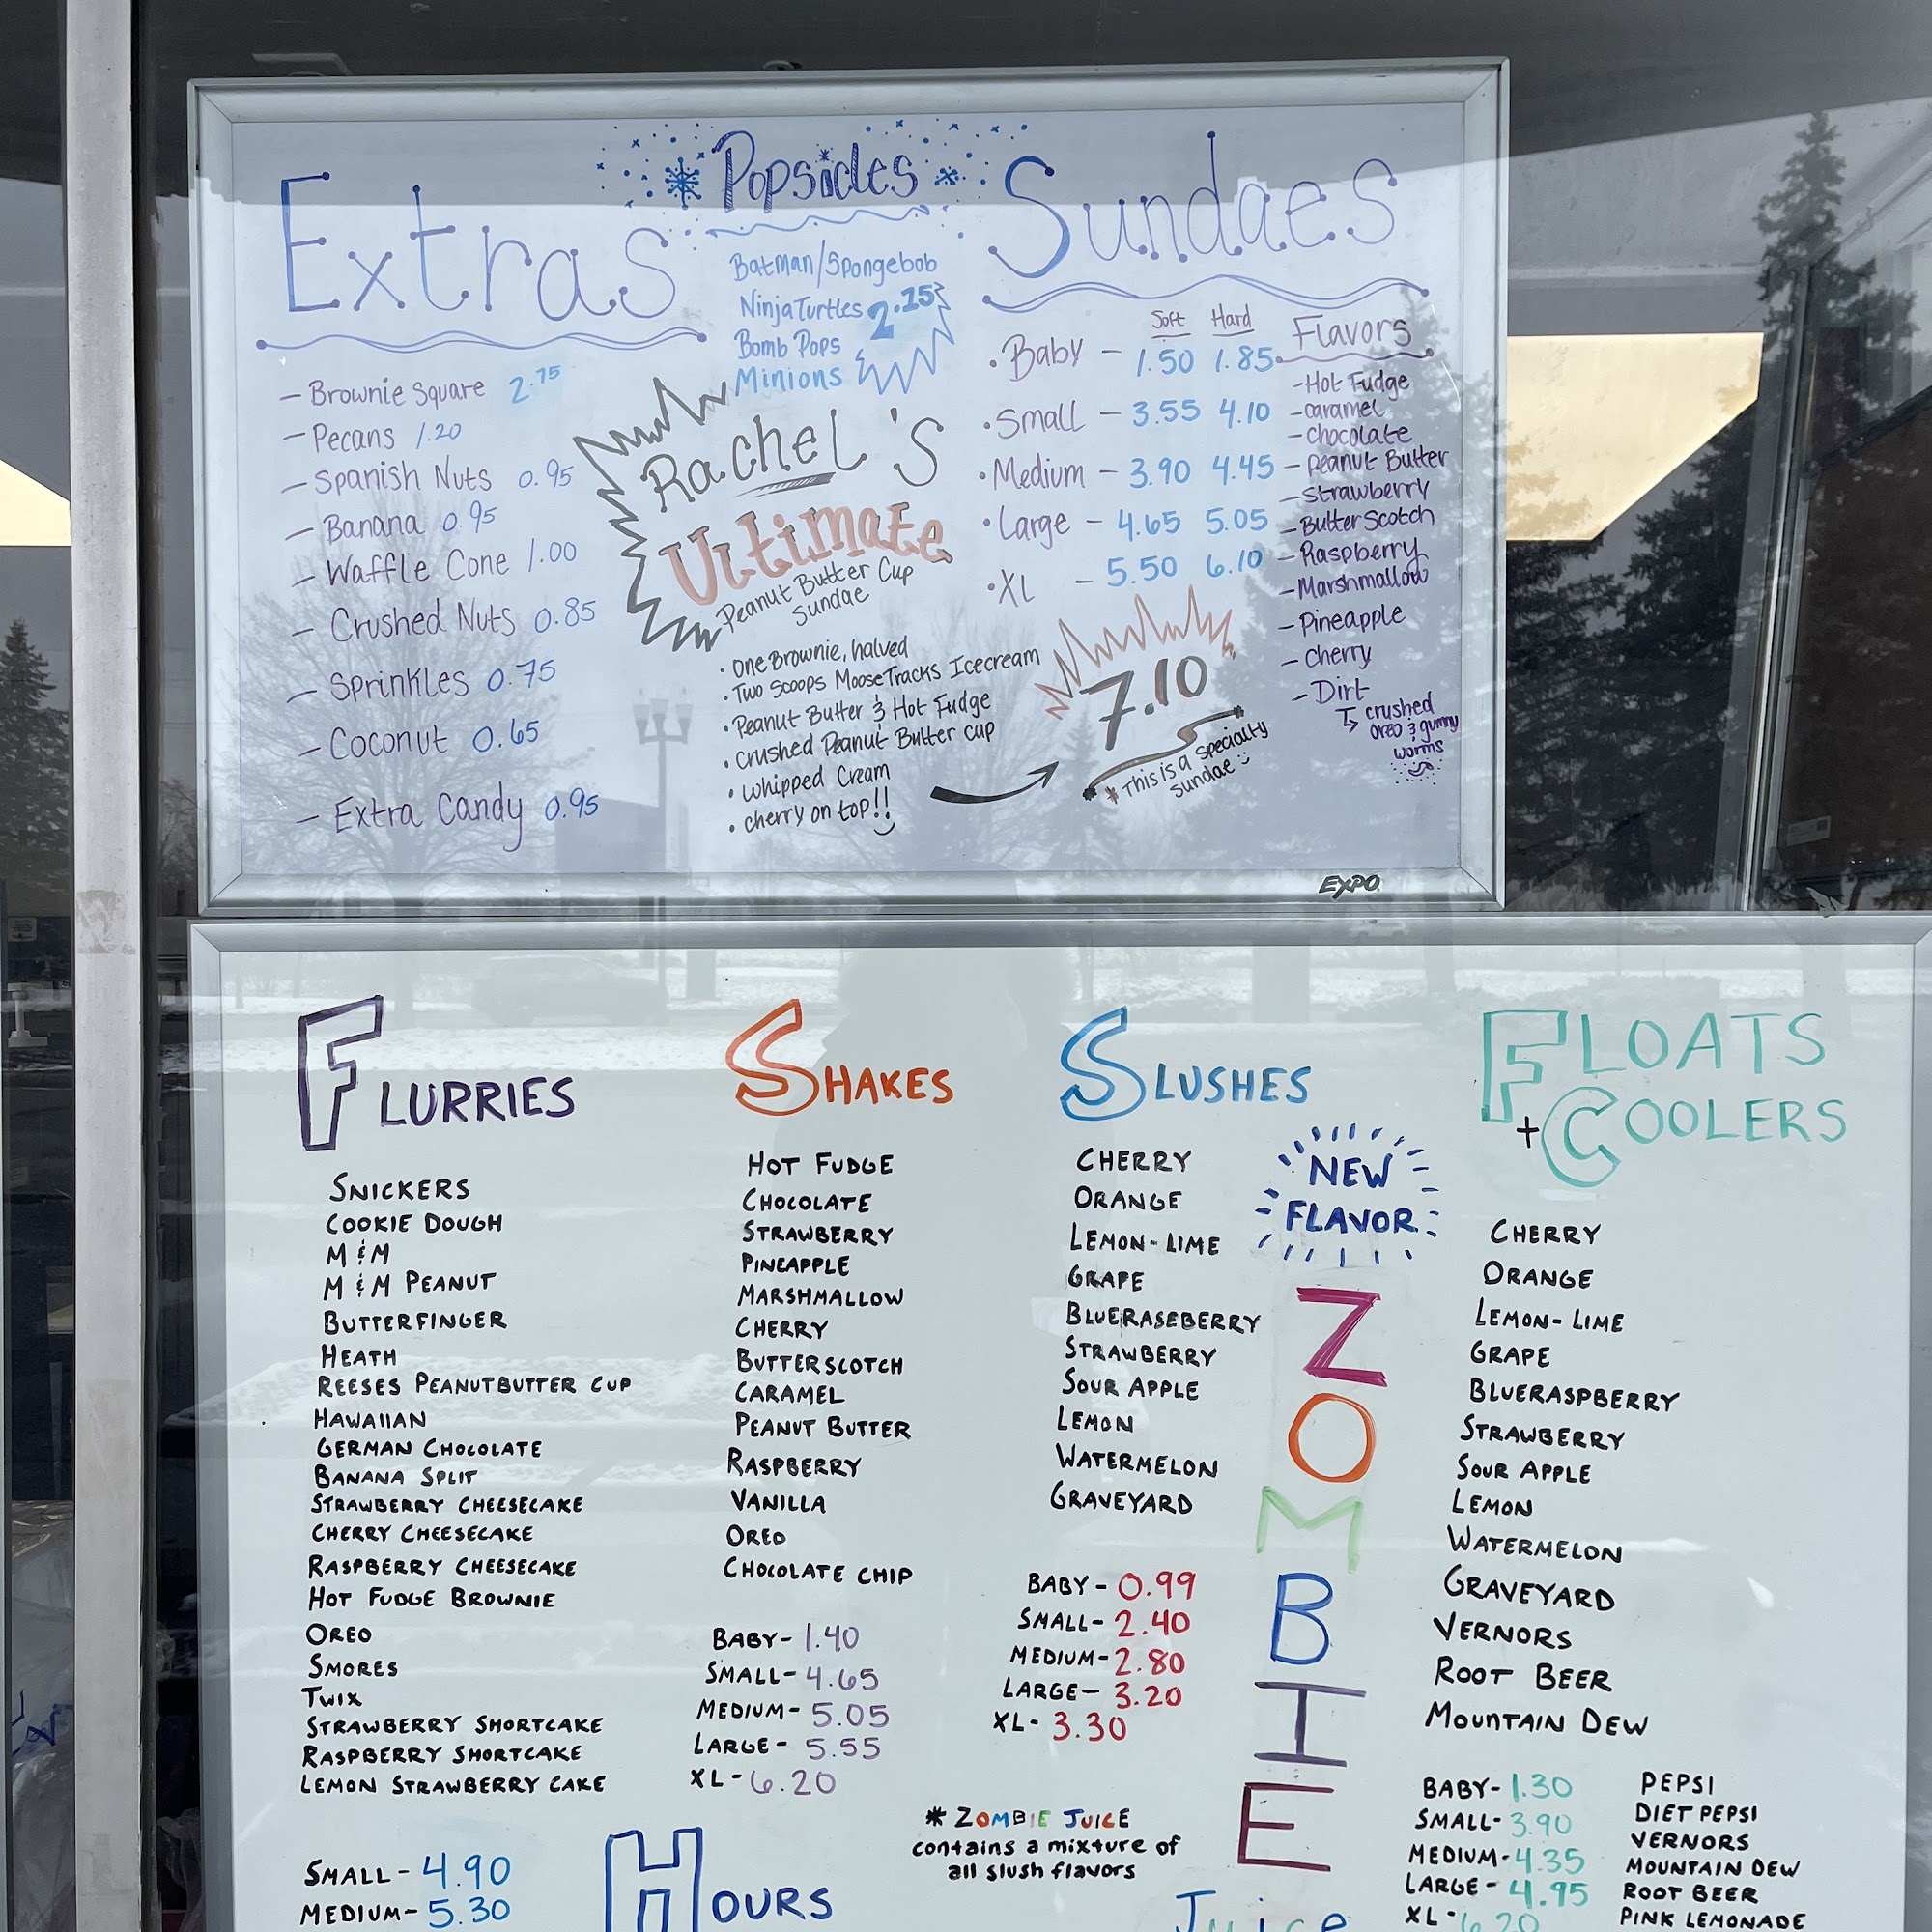 Extras
- Brownie Square 2.75
- Pecans 1.20
- Spanish Nuts 0.95
- Banana 0.95
- Waffle Cone 1.00
- Crushed Nuts 0.85
- Sprinkles 0.75
- Coconut 0.65
- Extra Candy 0.95
Popsicles
Batman/Spongebob
Ninja Turtles 2.15
Bomb Pops
Minions
Rachel's
Ultimate
Peanut Butter Cup
Sundae
• One Brownie, halved
• Two Scoops Moose Tracks Icecream
• Peanut Butter & Hot Fudge
• crushed Peanut Butter cup
• whipped Cream
• cherry on top!!
7.10
* This is a specialty
Sundae
Sundaes
Soft Hard
• Baby - 1.50 1.85
• Small - 3.55 4.10
• Medium - 3.90 4.45
• Large - 4.65 5.05
• XL - 5.50 6.10
Flavors
- Hot Fudge
- caramel
- chocolate
- Peanut Butter
- Strawberry
- Butter Scotch
- Raspberry
- Marshmallow
- Pineapple
- Cherry
- Dirt
crushed
oreo & gummy
worms
EXPO
FLURRIES
SNICKERS
COOKIE DOUGH
M & M
M & M PEANUT
BUTTERFINGER
HEATH
REESES PEANUTBUTTER CUP
HAWAIIAN
GERMAN CHOCOLATE
BANANA SPLIT
STRAWBERRY CHEESECAKE
CHERRY CHEESECAKE
RASPBERRY CHEESECAKE
HOT FUDGE BROWNIE
OREO
SMORES
TWIX
STRAWBERRY SHORTCAKE
RASPBERRY SHORTCAKE
LEMON STRAWBERRY CAKE
SMALL - 4.90
MEDIUM - 5.30
SHAKES
HOT FUDGE
CHOCOLATE
STRAWBERRY
PINEAPPLE
MARSHMALLOW
CHERRY
BUTTERSCOTCH
CARAMEL
PEANUT BUTTER
RASPBERRY
VANILLA
OREO
CHOCOLATE CHIP
BABY - 1.40
SMALL - 4.65
MEDIUM - 5.05
LARGE - 5.55
XL - 6.20
HOURS
SLUSHES
CHERRY
ORANGE
LEMON-LIME
GRAPE
BLUERASEBERRY
STRAWBERRY
SOUR APPLE
LEMON
WATERMELON
GRAVEYARD
BABY - 0.99
SMALL - 2.40
MEDIUM - 2.80
LARGE - 3.20
XL - 3.30
* ZOMBIE JUICE
contains a mixture of
all slush flavors
NEW
FLAVOR
ZOMBIE
Juice
FLOATS
+ COOLERS
CHERRY
ORANGE
LEMON-LIME
GRAPE
BLUERASPBERRY
STRAWBERRY
SOUR APPLE
LEMON
WATERMELON
GRAVEYARD
VERNORS
ROOT BEER
MOUNTAIN DEW
BABY - 1.30
SMALL - 3.90
MEDIUM - 4.35
LARGE - 4.95
XL - 6.20
PEPSI
DIET PEPSI
VERNORS
MOUNTAIN DEW
ROOT BEER
PINK LEMONADE